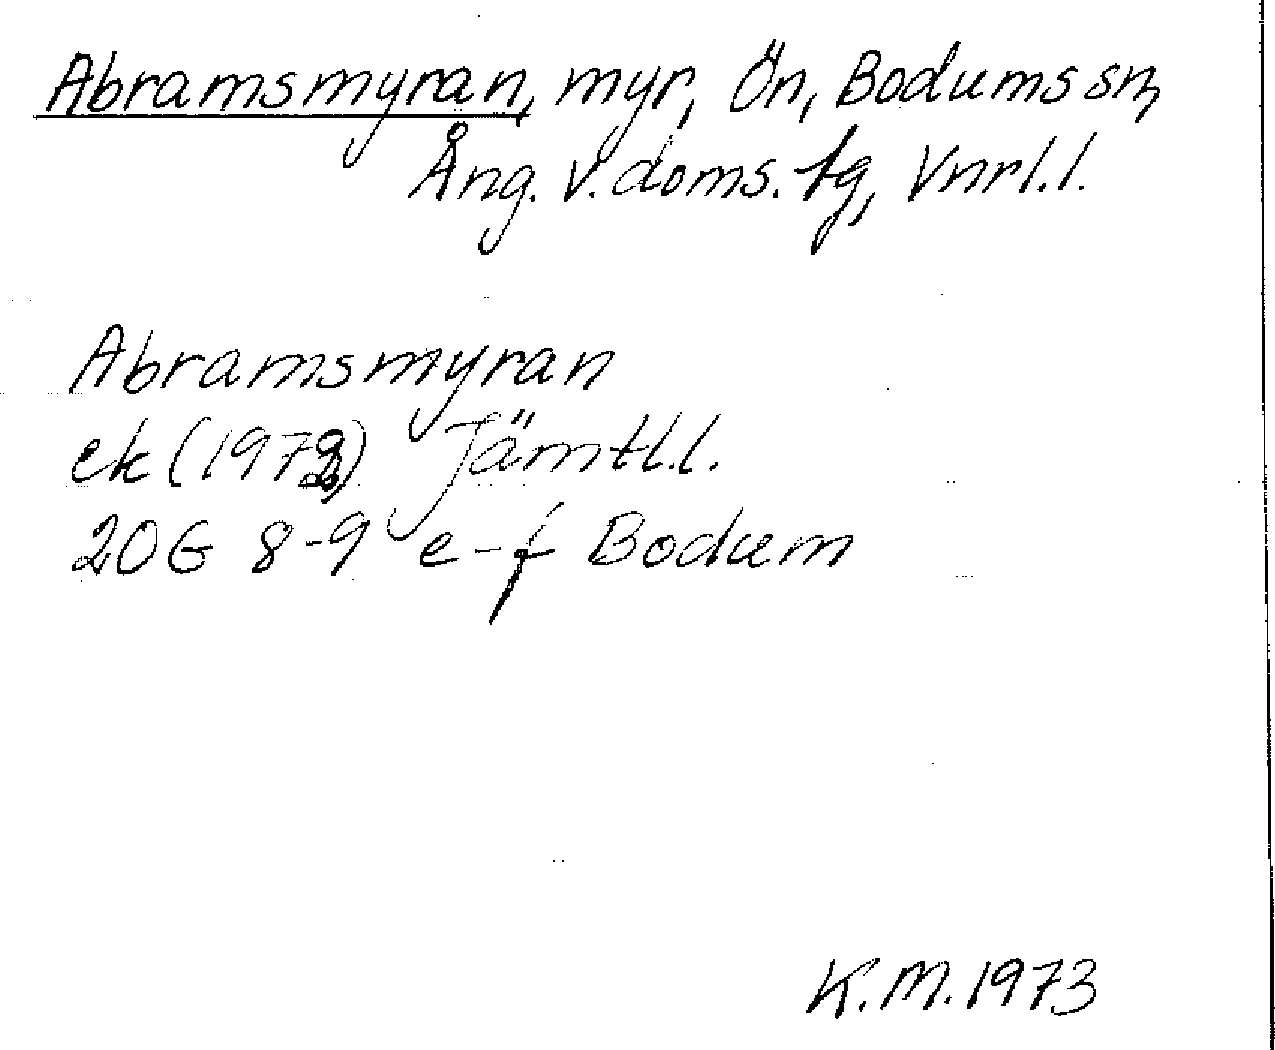 Abramsmyran, myr, Ön, Bodums sn,
Ång. v. doms. tg, Vnrl. l.
Abramsmyran
ek (1972) Jämtl. l.
20G 8-9 e-f Bodum
K. M. 1973